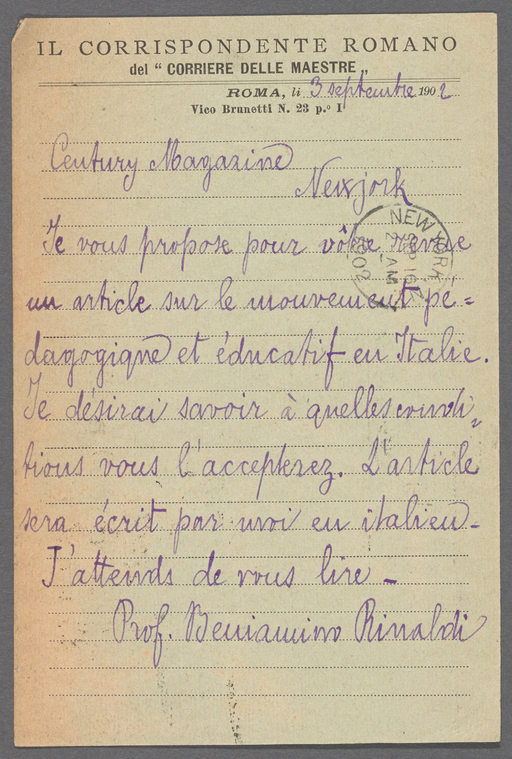 IL CORRISPONDENTE ROMANO
del "CORRIERE DELLE MAESTRE„
ROMA, li 3 septembre 1902
Vico Brunetti N. 23 p.º I
Century Magazine
Newjork
Je vous propose pour vôtre revue
un article sur le mouvement pé=
dagogique et éducatif en Italie.
Je désirai savoir à quelles condi=
tions vous l'accepterez. L'article
sera écrit par moi en italien-
J'attends de vous lire -
Prof. Beniamino Rinaldi
NEW YORK
SEP 16
2 AM
1902